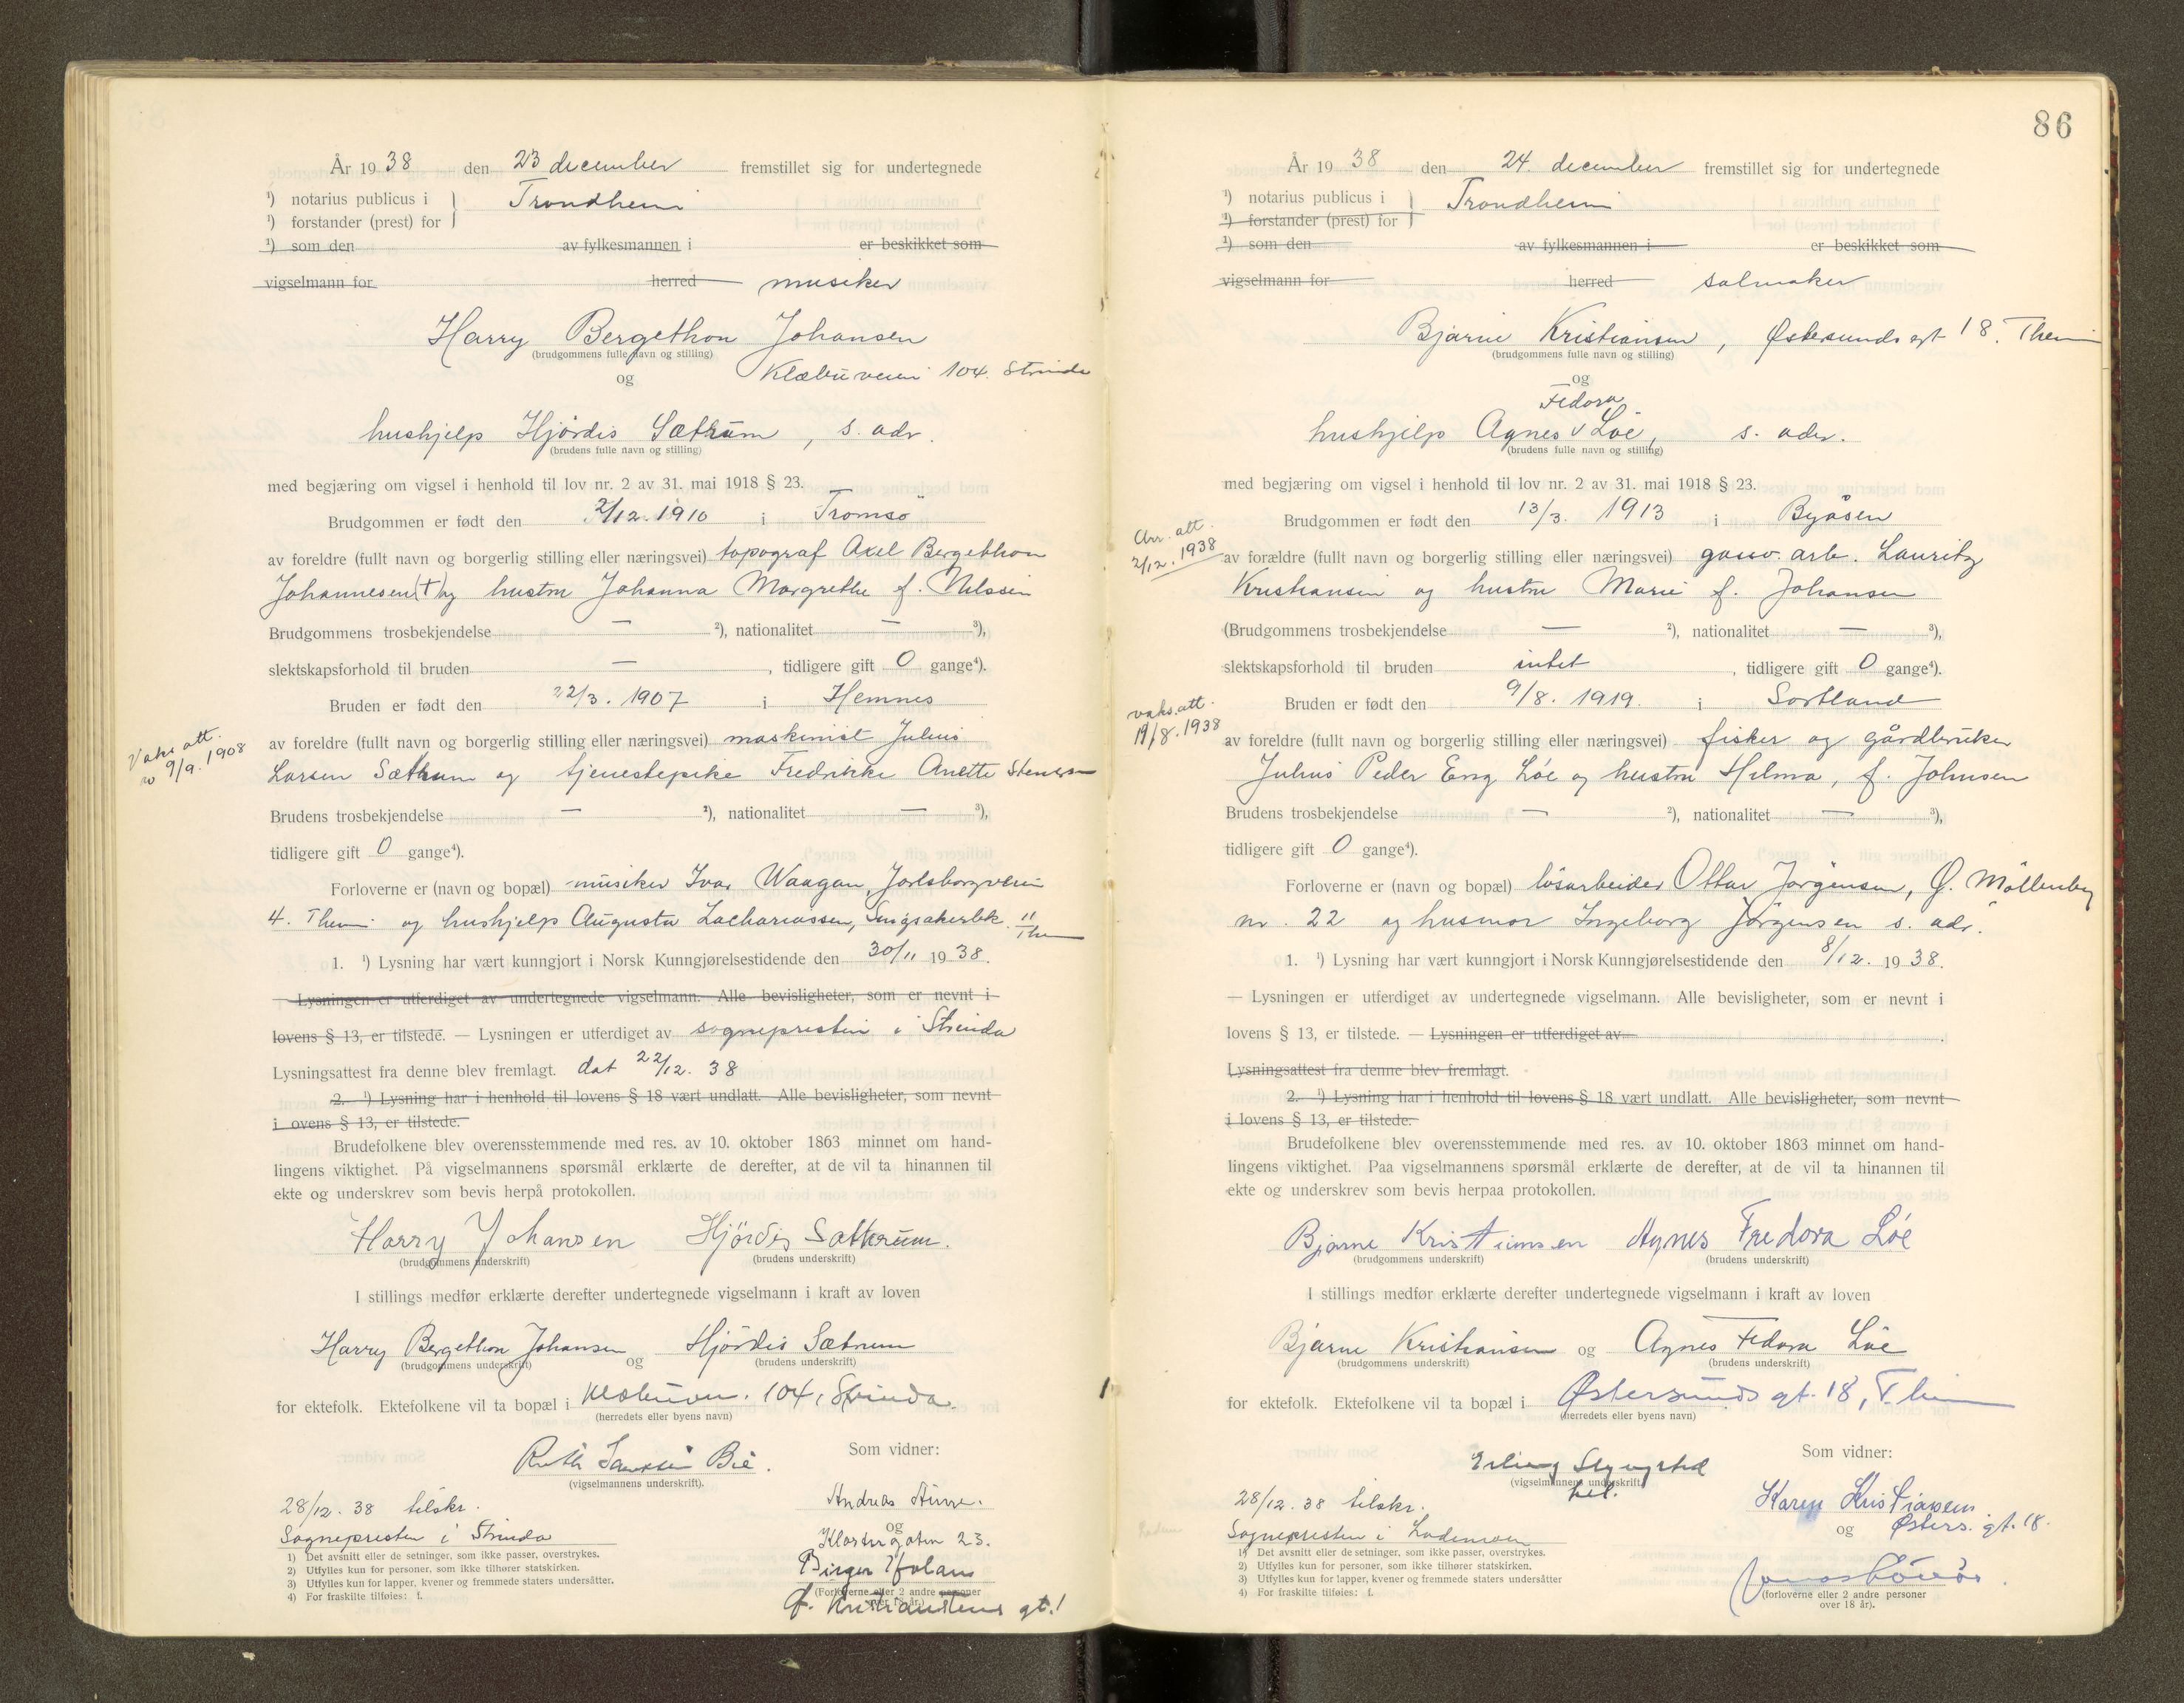 År 1938 den 23 december fremstillet sig for undertegnede
¹) notarius publicus i } Trondheim
¹) forstander (prest) for
¹) som den av fylkesmannen i er beskikket som
vigselmann for herred musiker
Harry Bergethon Johansen
(brudgommens fulle navn og stilling)
og Klæbuveien 104. Strinda
hushjelp Hjördis Sætrum, s. adr.
(brudens fulle navn og stilling)
med begjæring om vigsel i henhold til lov nr. 2 av 31. mai 1918 § 23.
Brudgommen er født den 2/12. 1910 i Tromsö
av foreldre (fullt navn og borgerlig stilling eller næringsvei) topograf Axel Bergethon
Johannesen (†) og hustru Johanna Margrethe f. Nilssen
Brudgommens trosbekjendelse — ²), nationalitet — ³),
slektskapsforhold til bruden — , tidligere gift 0 gange⁴).
Bruden er født den 22/3. 1907 i Hemnes
Vaks att.
9/9. 1908
av foreldre (fullt navn og borgerlig stilling eller næringsvei) maskinist Julius
Larsen Sæthrum og tjenestepike Fredrikke Anette Stensen
Brudens trosbekjendelse — ²), nationalitet — ³),
tidligere gift 0 gange⁴).
Forloverne er (navn og bopæl) musiker Ivar Waagan, Jarlsborgveien
4. Them og hushjelp Augusta Zachariassen, Singsakerbk. 11 Thm
1. ¹) Lysning har vært kunngjort i Norsk Kunngjørelsestidende den 30/11 1938.
— Lysningen er utferdiget av undertegnede vigselmann. Alle bevisligheter, som er nevnt i
lovens § 13, er tilstede. — Lysningen er utferdiget av sognepresten i Strinda
Lysningsattest fra denne blev fremlagt. dat 22/12. 38
2. ¹) Lysning har i henhold til lovens § 18 vært undlatt. Alle bevisligheter, som nevnt
i ovens § 13, er tilstede.
Brudefolkene blev overensstemmende med res. av 10. oktober 1863 minnet om hand-
lingens viktighet. På vigselmannens spørsmål erklærte de derefter, at de vil ta hinannen til
ekte og underskrev som bevis herpå protokollen.
Harry Johansen Hjördis Sæthrum.
(brudgommens underskrift) (brudens underskrift)
I stillings medfør erklærte derefter undertegnede vigselmann i kraft av loven
Harry Bergethon Johansen og Hjördis Sætrum
(brudgommens underskrift) (brudens underskrift)
for ektefolk. Ektefolkene vil ta bopæl i Klæbuvn. 104, Strinda.
(herredets eller byens navn)
Som vidner:
Ruth Bie.
(vigselmannens underskrift).
28/12. 38 tilskr.
Sognepresten i Strinda
Andreas
og
Klostergaten 23.
Birger
(Forloverne eller 2 andre personer
over 18 år.)
gt. 1
1) Det avsnitt eller de setninger, som ikke passer, overstrykes.
2) Utfylles kun for personer, som ikke tilhører statskirken.
3) Utfylles kun for lapper, kvener og fremmede staters undersåtter.
4) For fraskilte tilføies: f.
86
År 1938 den 24. december fremstillet sig for undertegnede
¹) notarius publicus i } Trondheim
¹) forstander (prest) for
¹) som den av fylkesmannen i er beskikket som
vigselmann for herred salmaker
Bjarne Kristiansen, Østersunds gt 18. Them
(brudgommens fulle navn og stilling)
og
Fedora
hushjelp Agnes v Löe, s. adr.
(brudens fulle navn og stilling)
med begjæring om vigsel i henhold til lov nr. 2 av 31. mai 1918 § 23.
Brudgommen er født den 13/3. 1913 i Byåsen
att.
2/12. 1938
av forældre (fullt navn og borgerlig stilling eller næringsvei) gassv. arb. Lauritz
Kristiansen og hustru Marie f. Johansen
(Brudgommens trosbekjendelse — ²), nationalitet — ³),
slektskapsforhold til bruden intet , tidligere gift 0 gange⁴).
Bruden er født den 9/8. 1919. i Sortland
vaks. att.
19/8. 1938
av foreldre (fullt navn og borgerlig stilling eller næringsvei) fisker og gårdbruker
Julius Peder Eng Löe og hustru Hilma, f. Johnsen
Brudens trosbekjendelse — ²), nationalitet — ³),
tidligere gift 0 gange⁴).
Forloverne er (navn og bopæl) lösarbeider Ottar Jörgensen, Ö. Möllenberg
nr. 22 og husmor Ingeborg Jörgensen s. adr.
1. ¹) Lysning har vært kunngjort i Norsk Kunngjørelsestidende den 8/12. 1938.
— Lysningen er utferdiget av undertegnede vigselmann. Alle bevisligheter, som er nevnt i
lovens § 13, er tilstede. — Lysningen er utferdiget av
Lysningsattest fra denne blev fremlagt.
2. ¹) Lysning har i henhold til lovens § 18 vært undlatt. Alle bevisligheter, som nevnt
i lovens § 13, er tilstede.
Brudefolkene blev overensstemmende med res. av 10. oktober 1863 minnet om hand-
lingens viktighet. Paa vigselmannens spørsmål erklærte de derefter, at de vil ta hinannen til
ekte og underskrev som bevis herpaa protokollen.
Bjarne Kristiansen Agnes Fredora Löe
(brudgommens underskrift) (brudens underskrift)
I stillings medfør erklærte derefter undertegnede vigselmann i kraft av loven
Bjarne Kristiansen og Agnes Fedora Löe
(brudgommens underskrift) (brudens underskrift)
for ektefolk. Ektefolkene vil ta bopæl i Østersunds gt. 18, T.hm
(herredets eller byens navn)
Som vidner:
Erling
(vigselmannens underskrift)
28/12. 38 tilskr.
Sognepresten i Lademoen
Karen Kristiansen
og Østers. gt. 18.
(forloverne eller 2 andre personer
over 18 år).
1) Det avsnitt eller de setninger, som ikke passer, overstrykes.
2) Utfylles kun for personer, som ikke tilhører statskirken.
3) Utfylles kun for lapper, kvener og fremmede staters undersåtter
4) For fraskilte tilføies: f.